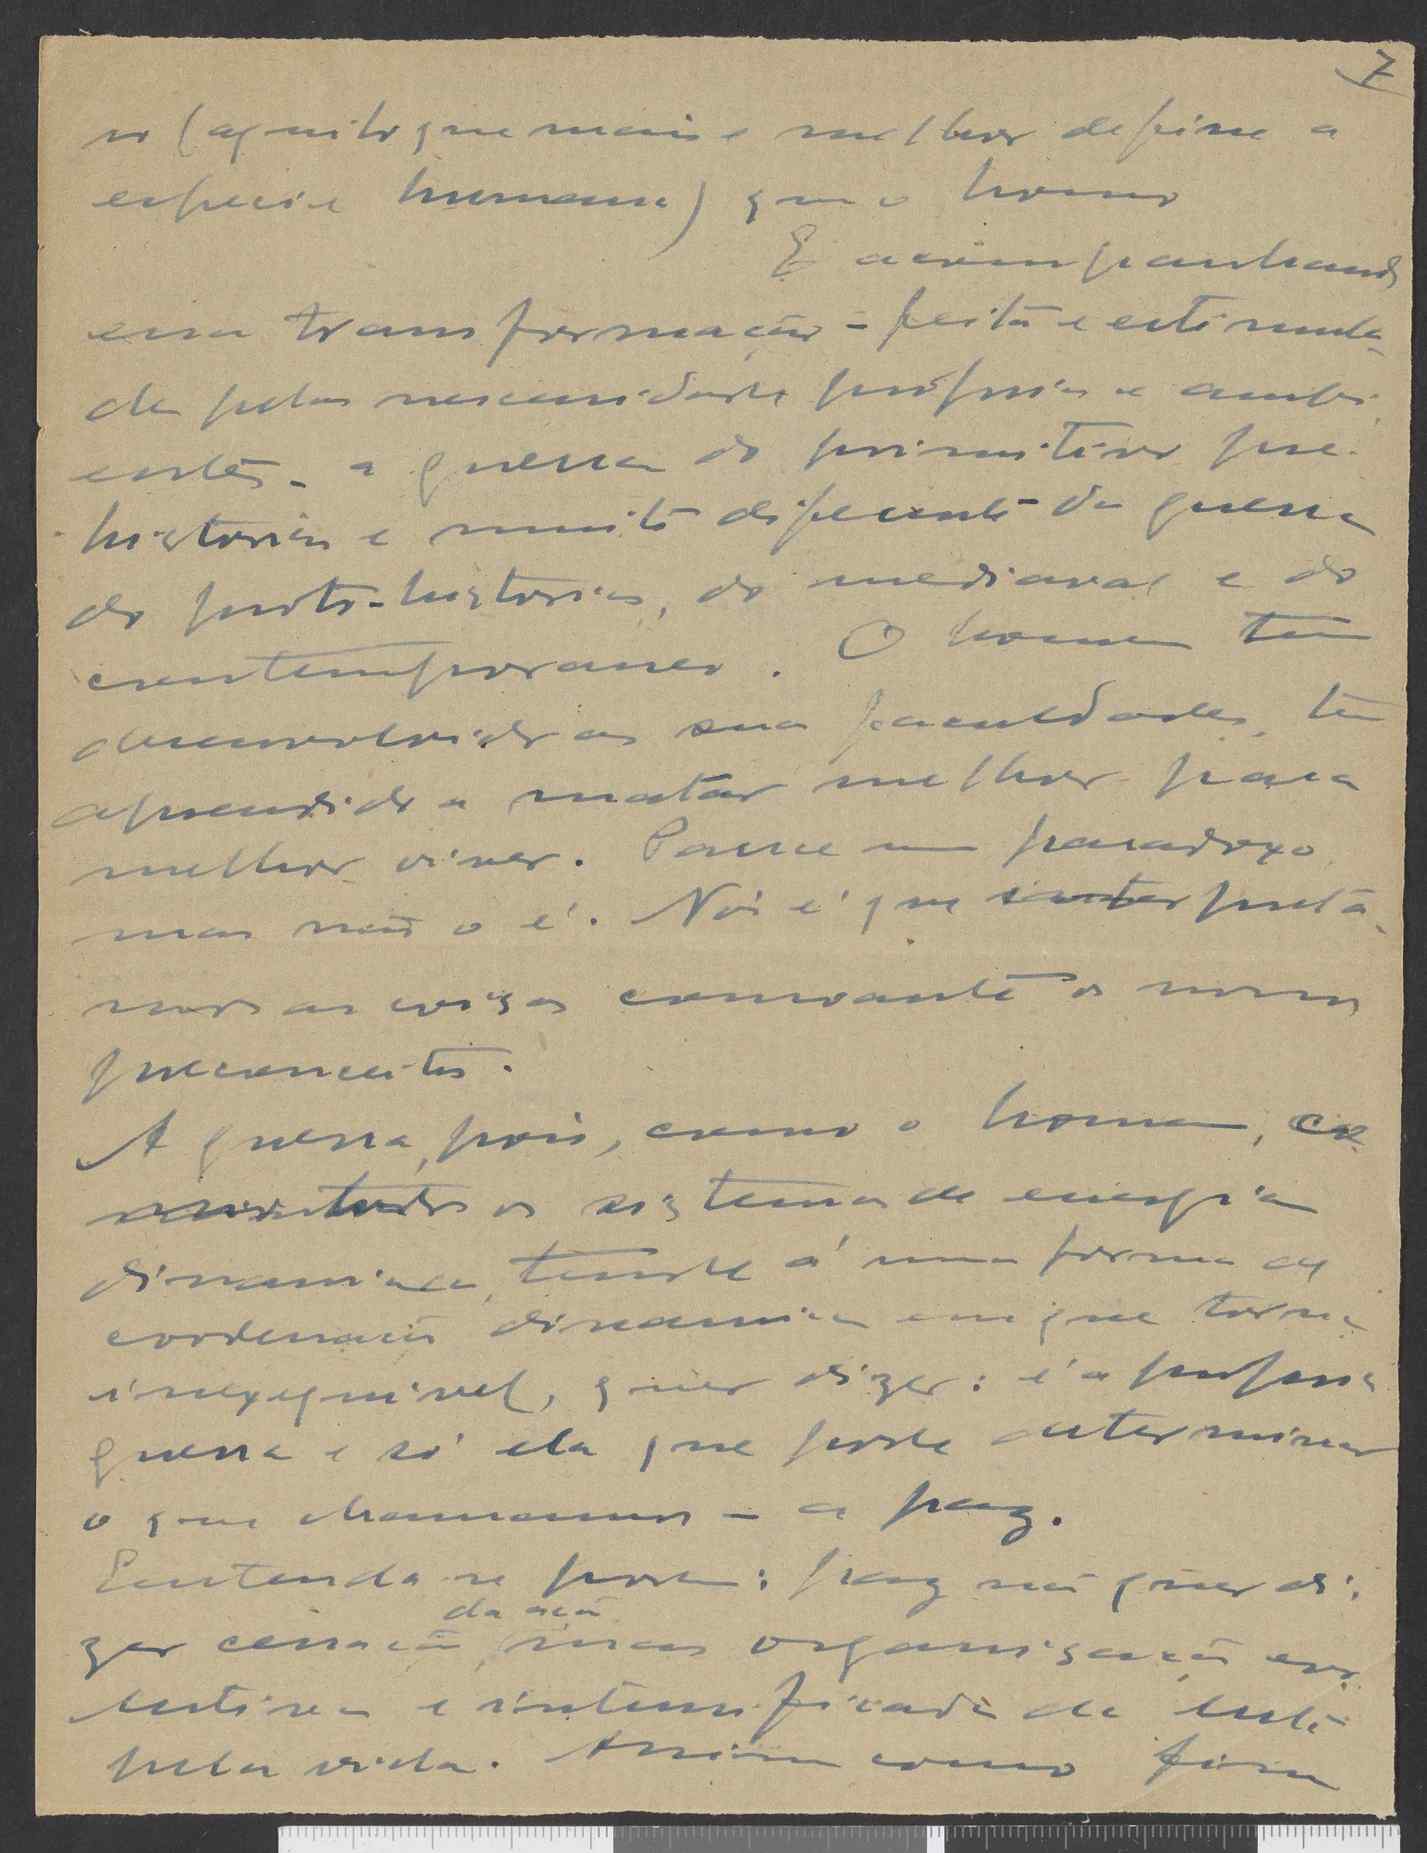 7
so (aquilo que mais e melhor define a
especie humana) que o homo
E acompanhando
essa transformação - feita e estimula-
da pelas necessidades próprias e ambi-
entes - a guerra do primitivo pre-
historico e muito diferente da guerra
do proto-historico, do mediaval e do
contemporaneo. O homem tem
desenvolvido as suas faculdades, tem
aprendido a matar melhor para
melhor viver. Parece um paradoxo
mas não o é. Nós é que interpretá-
mos as coisas consoante os nossos
preconceitos.
A guerra, pois, como o homem, co-
mo todos os sistemas de energia
dinamica, tende á uma forma de
coordenação dinamica em que torna
inexequivel, quer dizer: é a propria
guerra e só ela que pode determinar
o que chamamos - a paz.
Entenda-se porem: paz não quer di-
da acão
zer cessação, mas organisação evo-
lutiva e intensificada da luta
pela vida. Assim como fôra